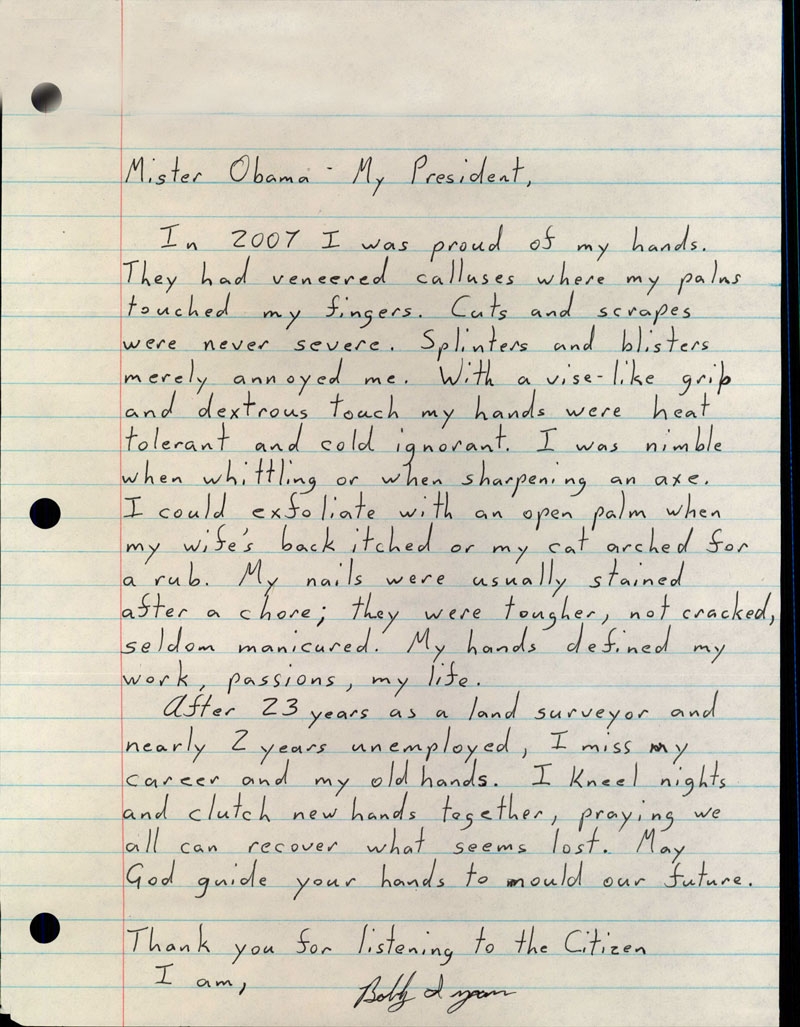 Mister Obama - My President,
In 2007 I was proud of my hands.
They had veneered calluses where my palms
touched my fingers. Cuts and scrapes
were never severe. Splinters and blisters
merely annoyed me. With a vise-like grip
and dextrous touch my hands were heat
tolerant and cold ignorant. I was nimble
when whittling or when sharpening an axe.
I could exfoliate with an open palm when
my wife's back itched or my cat arched for
a rub. My nails were usually stained
after a chore; they were tougher, not cracked,
seldom manicured. My hands defined my
work, passions, my life.
After 23 years as a land surveyor and
nearly 2 years unemployed, I miss my
career and my old hands. I kneel nights
and clutch new hands together, praying we
all can recover what seems lost. May
God guide your hands to mould our future.
Thank you for listening to the Citizen
I am,
Bobby